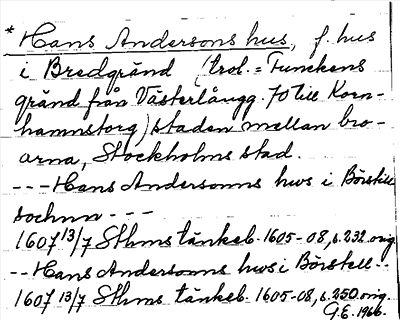 * Hans Andersons hus, f. hus
i Bredgränd (trol. = Funckens
gränd från Västerlångg. 70 till Korn-
hamnstorg) staden mellan bro-
arna, Stockholms stad.
--- Hans Andersonns hws i Börstill
sochnn ---
1607 13/7 Sthms tänkeb. 1605-08, s. 232. orig.
-- Hans Andersonns hws i Börstell --
1607 13/7 Sthms tänkeb. 1605-08, s. 250. orig.
G.E. 1966.